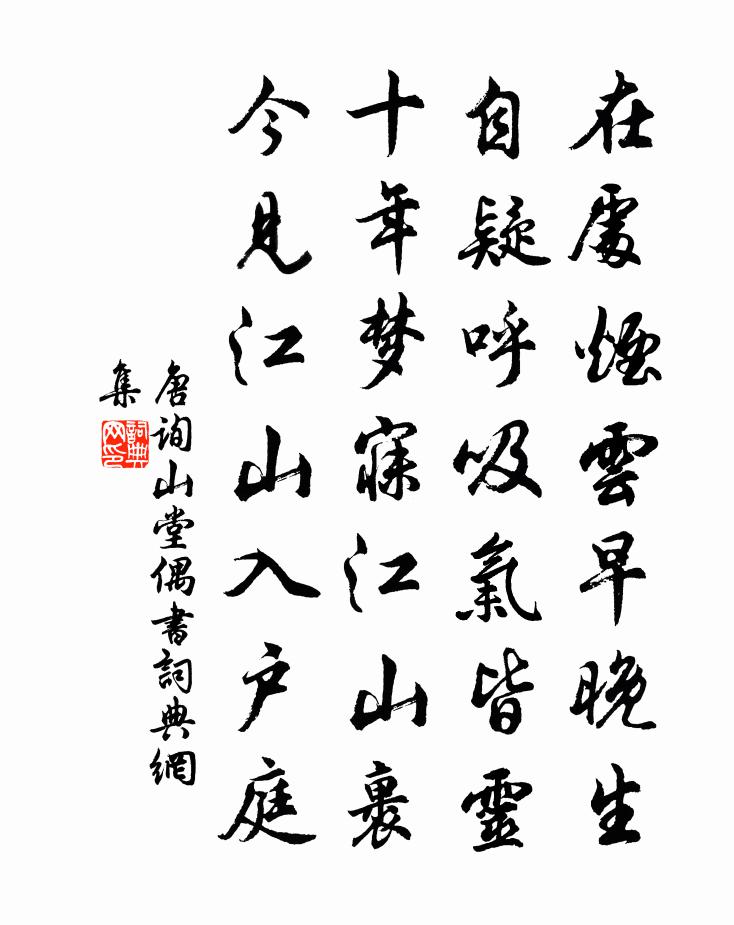 在處煙雲早晚生
自疑呼吸氣皆靈
十年梦寐江山裹
今見江山入户庭
唐詢山堂偶書詞典網
集
詞典
网印